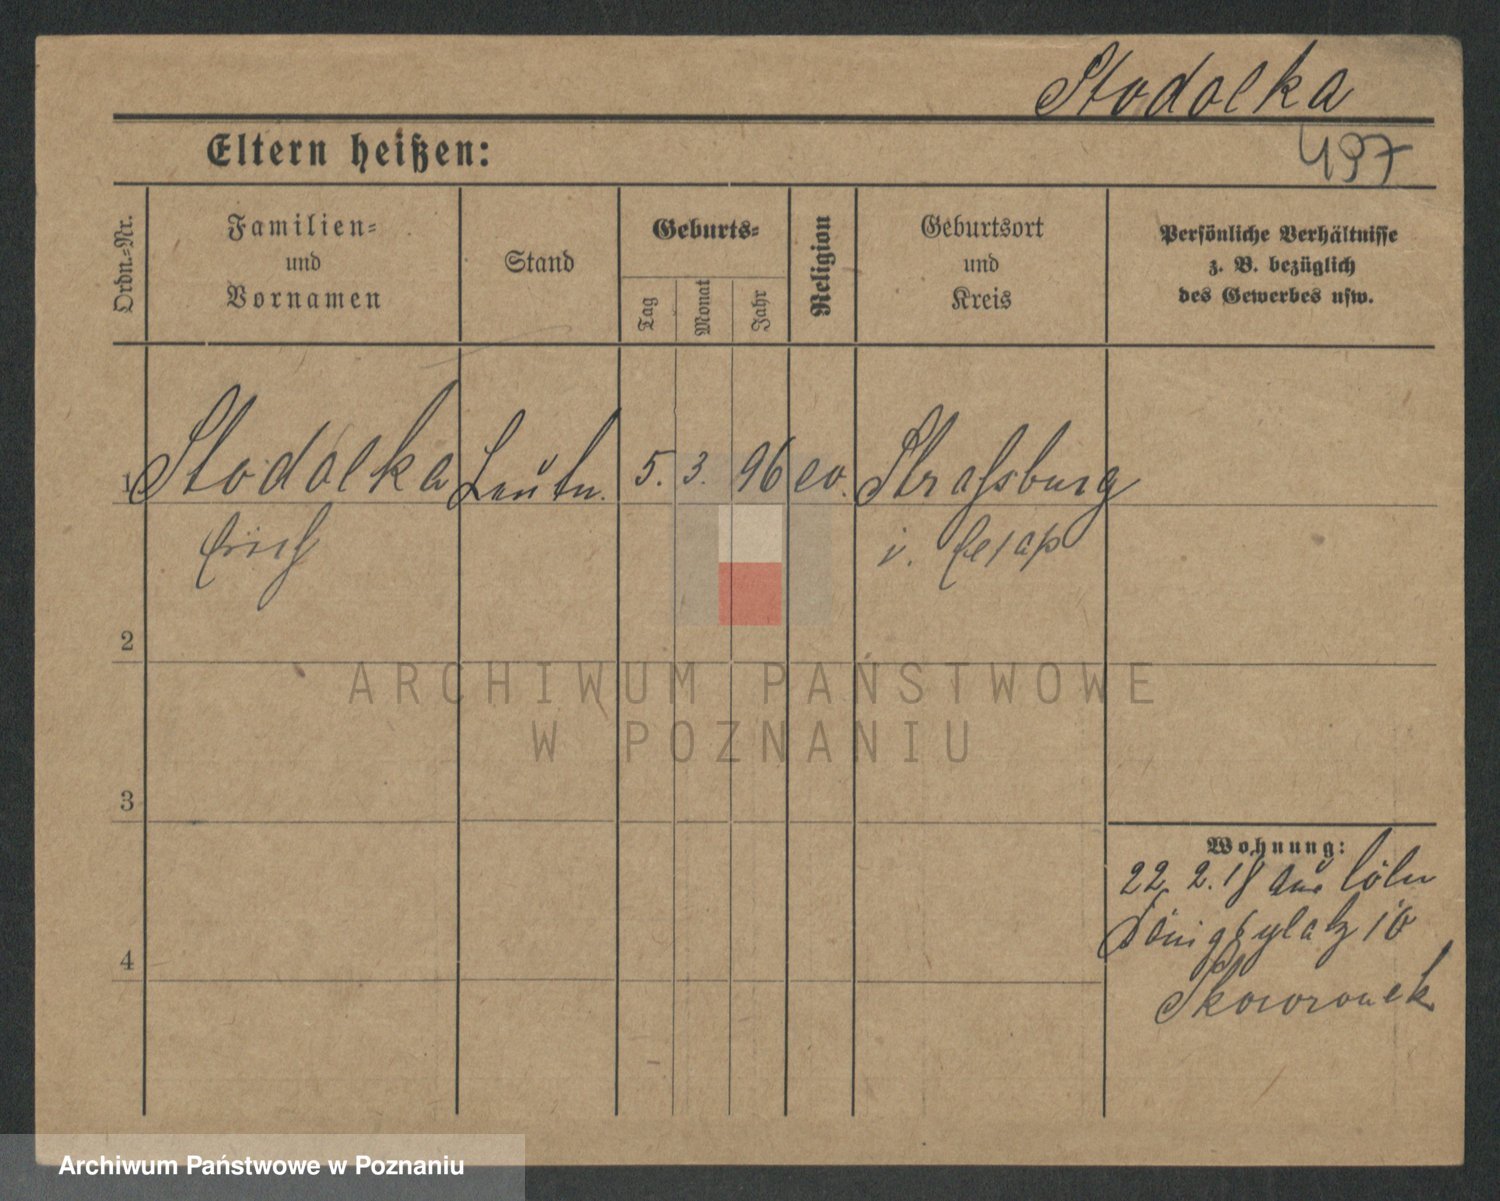 Stodolka
497
Eltern heißen:
Ordn.-Nr.
Familien-
und
Vornamen
Stand
Geburts-
Tag
Monat
Jahr
Religion
Geburtsort
und
Kreis
Persönliche Verhältnisse
z. B. bezüglich
des Gewerbes usw.
1 Stodolka Leutn. 5. 3. 96 ev. Strassburg
Erich i. Elsaß
2
ARCHIWUM PAŃSTWOWE
W POZNANIU
3
Wohnung:
22. 2. 18 aus Cöln
Königsplatz 10
4
Skowronek
Archiwum Państwowe w Poznaniu